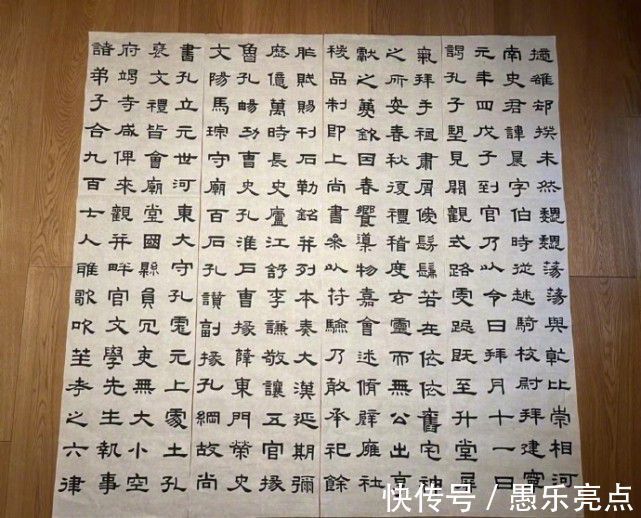 摛雒却揆未然魏魏蕩蕩與乾比崇相河
南史君諱晨字伯時從越騎校尉拜建寧
元年四戊子到官乃以令日拜月十一日
謁孔子望見闕觀式路虔跽既至升堂屏
氣拜手祖肅屑僾髣髴若在依依舊宅神
之所安春秋復禮稽度玄靈而無公出享
獻之薦欽因春饗導物嘉會述脩辟雍社
稷品制即上尚書參以符驗乃敢承祀餘
胙賦賜刊石勒銘并列本奏大漢延期彌
歷億萬時長史廬江舒李謙敬讓五官掾
魯孔暢功曹史孔淮戶曹掾薛東門榮史
文陽馬琮守廟百石孔讚副掾孔綱故尚
書孔立元世河東大守孔彪元上處土孔
褒文禮皆會廟堂國縣員冗吏無大小空
府竭寺咸俾來觀并畔官文學先生執事
諸弟子合九百士人雅歌吹笙考之六律
快传号 / 愚乐亮点